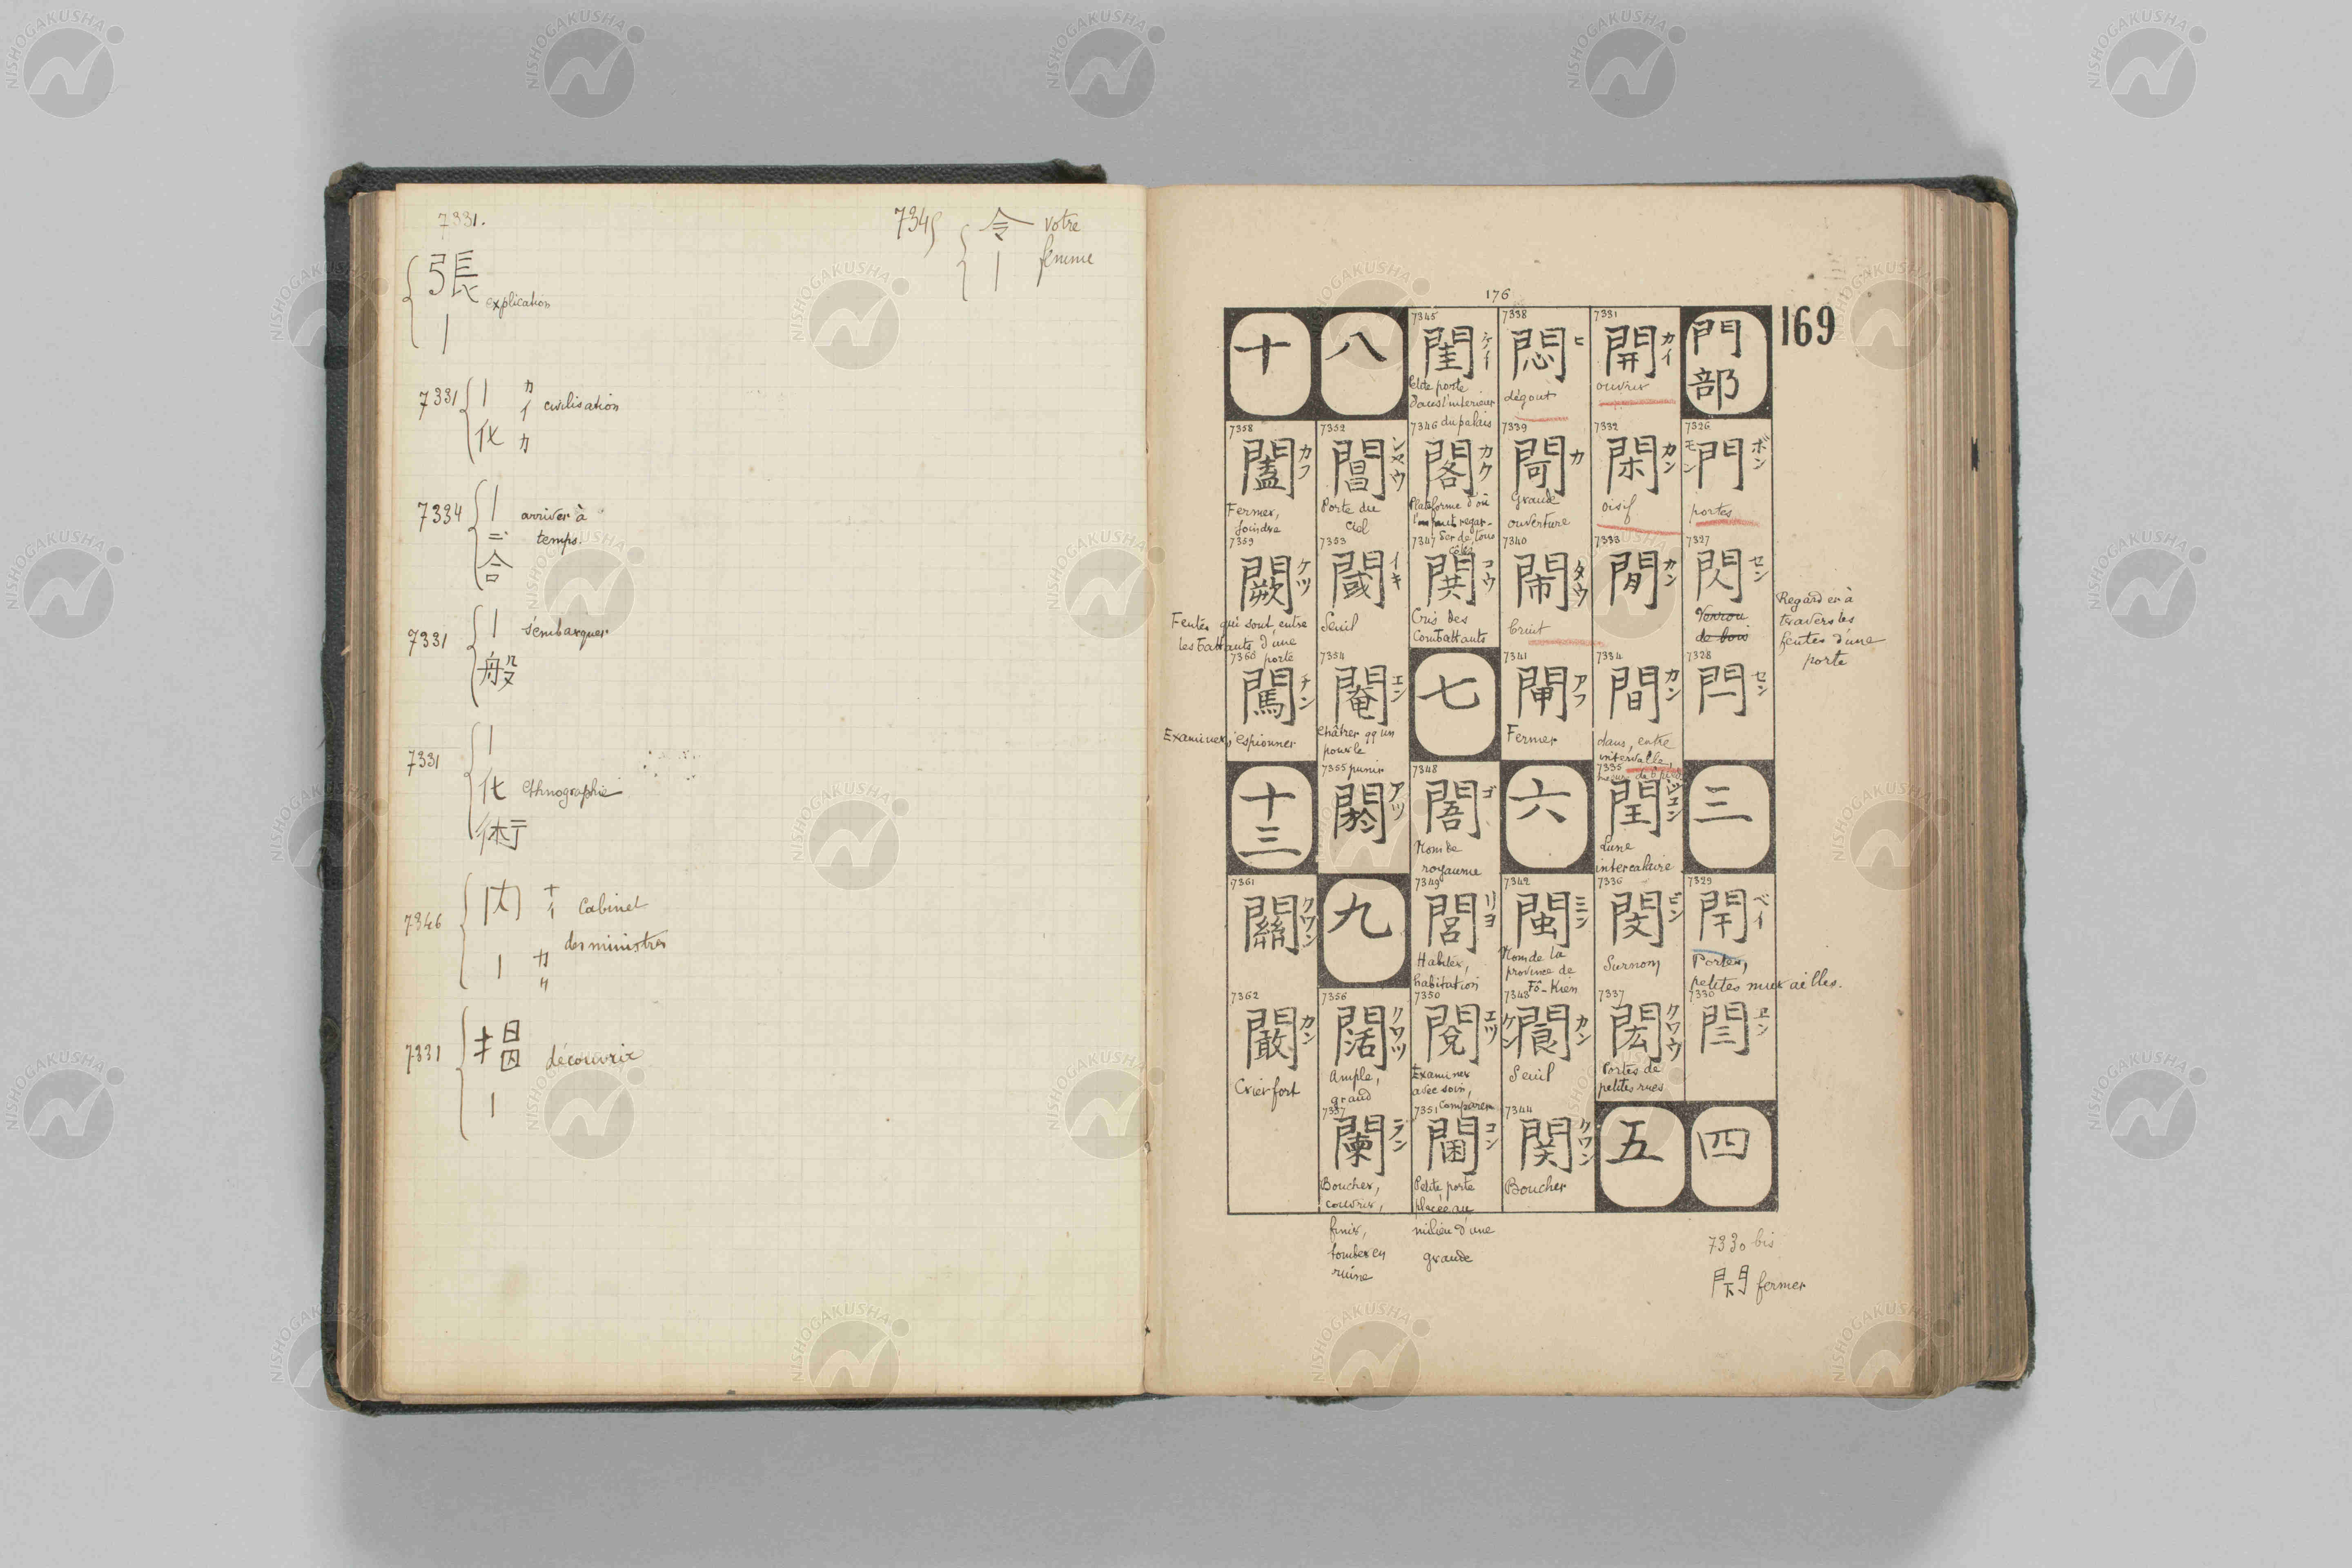 7331.
張
explication
|
7331 | カイ civilisation
化 カ
7334 | arriver à
ニ temps.
合
7331 | s'embarquer
般
7331 |
化 ethnographie
術
7346 内 ナイ Cabinet
des ministres
| カク
7331 搵 découvrir
|
7345 令 votre
| femme
176
169
門部
7326
門 ボン モン
portes
7327
閃 セン
Verrou
de bois
Regarder à
travers les
fentes d'une
porte
7328
閂 セン
三
7329
閈 ベイ
Portes,
petites murailles.
7330
閆 ヱン
四
7331
開 カイ
ouvrir
7332
閑 カン
oisif
7333
閒 カン
7334
間 カン
dans, entre
intervalle,
7335
閏
Lune
intercalaire
7336
閔 ビン
Surnom
7337
閎 クワウ
Portes de
petites rues
五
7338
悶 ヒ
dégout
7339
閜 カ
Grande
ouverture
7340
閙 タウ
bruit
7341
閘 アフ
Fermer
六
7342
閩 ミン
Nom de la
province de
Fô-Kien
7343
閬 カン ケン
Seuil
7344
関 クワン
Boucher
7345
閨 ケイ
Petite porte
dans l'interieur
du palais
7346
閣 カク
Plateforme d'où
l'on peut regar-
der de tous
côtés
7347
閧 コウ
Cris des
Combattants
七
7348
閭 ゴ
Nom de
royaume
7349
閭 リヨ
Habiter,
habitation
7350
閲 エツ
Examiner
avec soin,
comparer
7351
閫 コン
Petite porte
placée au
milieu d'une
grande
八
7352
閶
Porte du
Ciel
7353
閾 イキ
Seuil
7354
閹 エン
Châtrer qq un
pour le
punir
7355
閼 アツ
九
7356
闊 クワツ
Ample,
grand
7357
闌 ラン
Boucher,
couvrir,
finir,
tomber en
ruine
十
7358
闔 カフ
Fermer,
joindre
7359
闕 ケツ
Fentes qui sont entre
les battants d'une
porte
7360
闖 チン
Examiner, espionner
十三
7361
關 クワン
7362
闞 カン
Crier fort
7330 bis
閇 fermer
NISHOGAKUSHA